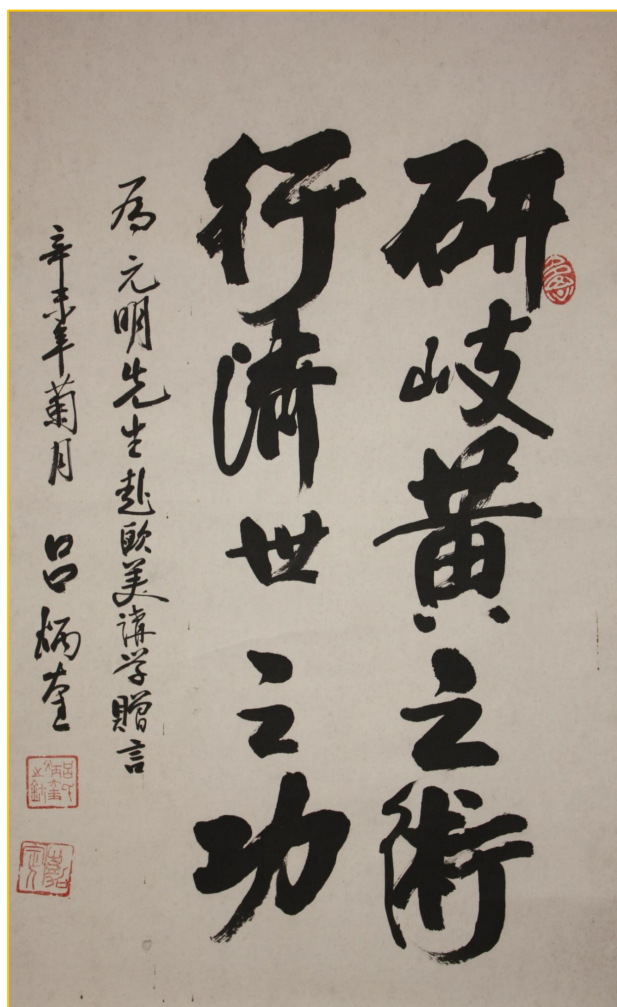 研岐黄之術
行濟世之功
为元明先生赴欧美講学贈言
辛未年菊月 吕炳奎